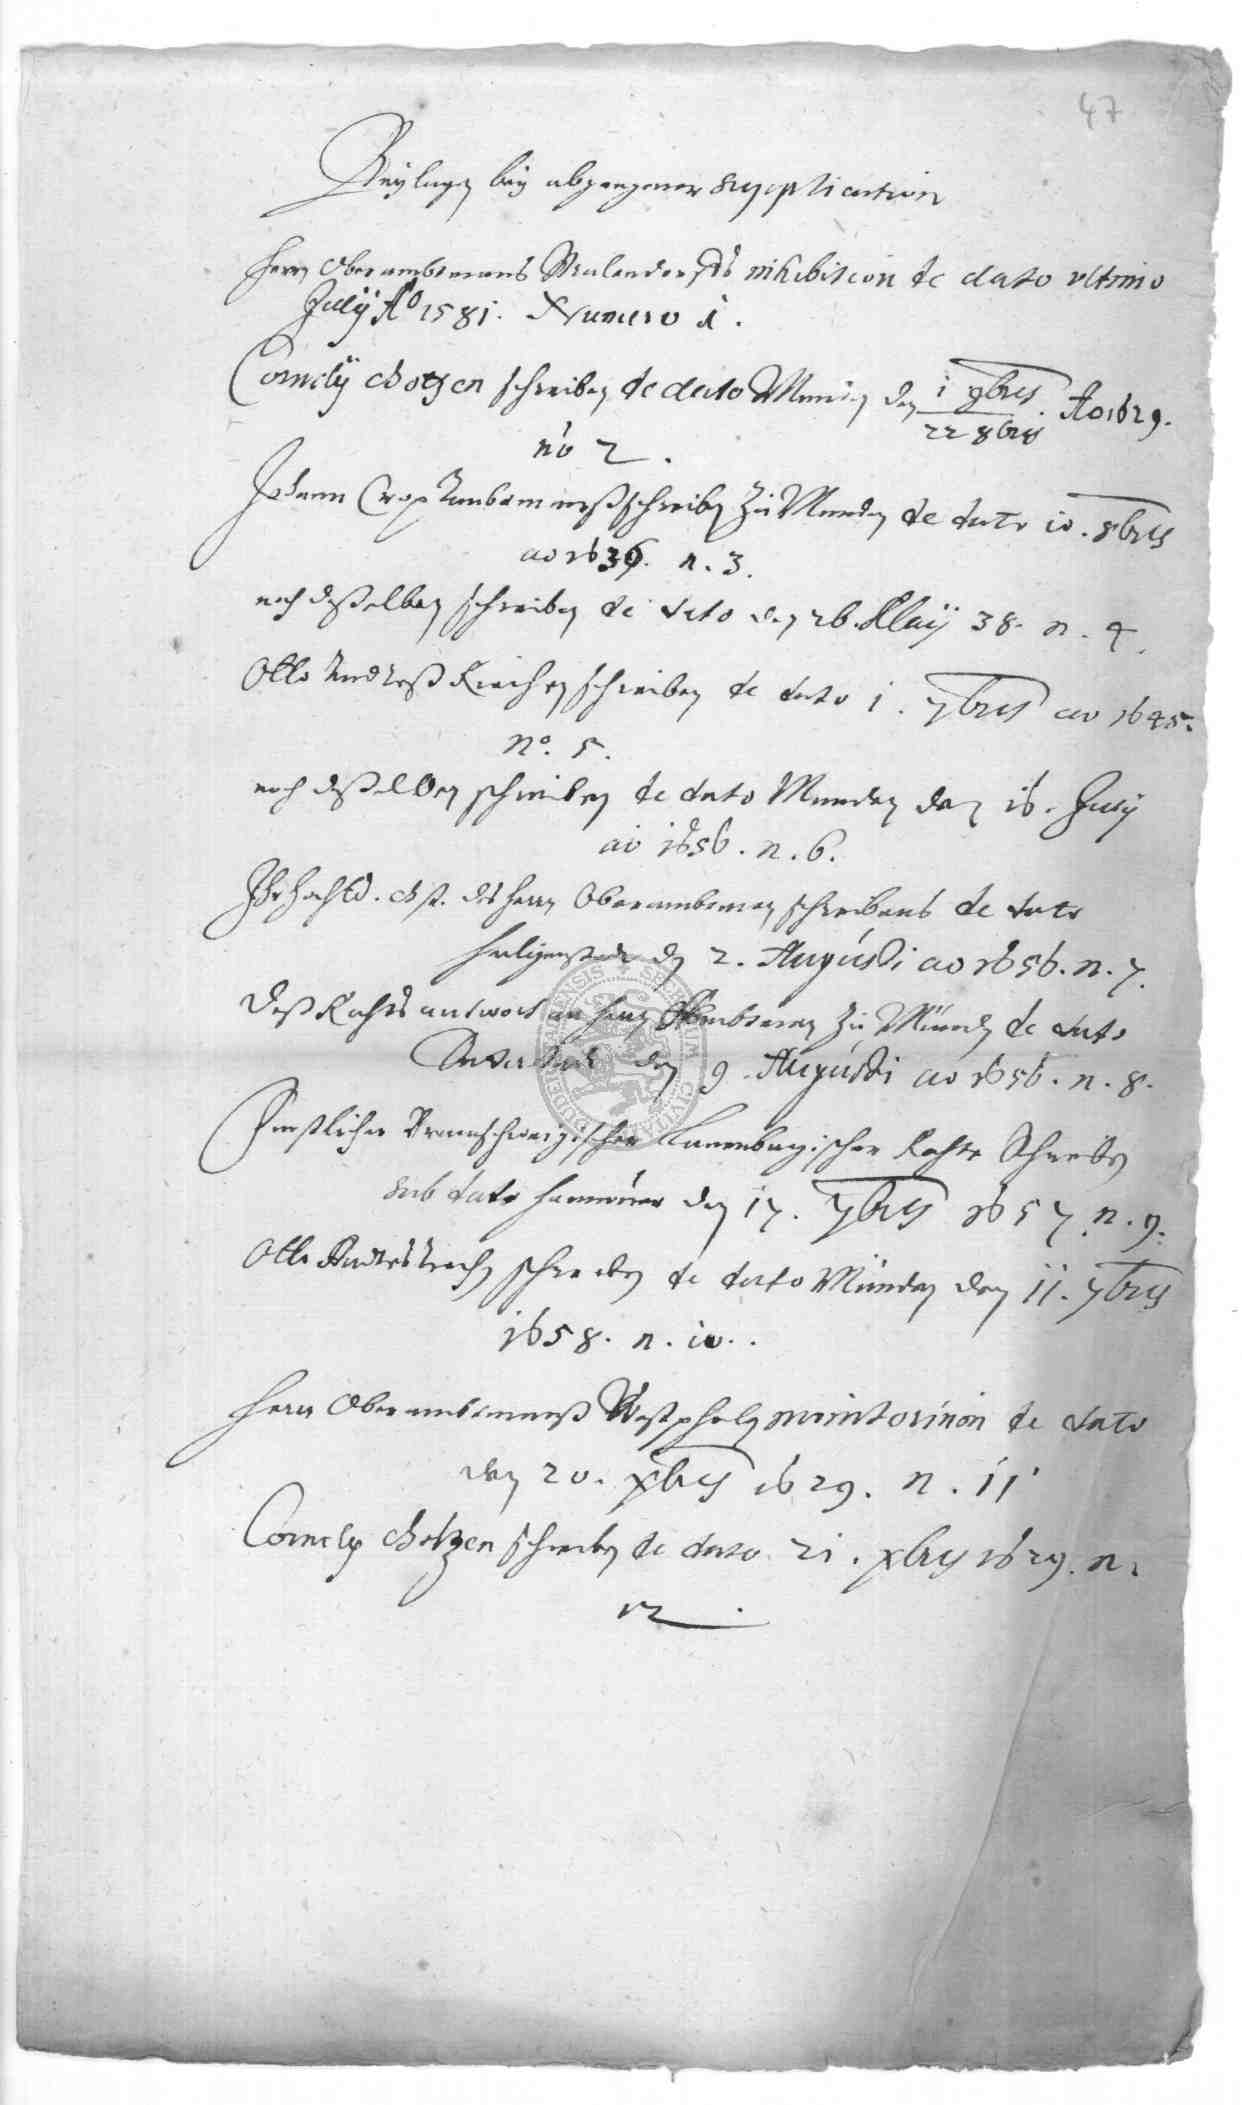 47
Beylagen bey abgangener supplication
Herrn Oberambtmans inhibition de dato ultimo
July Ao 1581. Numero 1.
Cornely Gotzen schreiben de dato Münden den 1 9bris / 22 8bris Ao 1629.
no 2.
Johann schreiben zu Munden de dato 10. 8bris
ao 1636. n. 3.
noch deßelben schreiben de dato den 26. May 38. n. 4.
Otto Andreß schreiben de dato 1. 7bris ao 1645.
No. 5.
noch deßelben schreiben de dato Munden den 16. July
ao 1656. n. 6.
des herrn Oberambtman schreibens de dato
Heiligenstadt den 2. Augusti ao 1656. n. 7.
Deß Rahts antwort an Ambtman zu Münden de dato
Duderstadt den 9. Augusti ao 1656. n. 8.
Furstlicher Braunschweigischer Lunenburgischer Rahte Schreiben
sub dato Hannover den 17. 7bris 1657. n. 9.
Otto Andres schreiben de dato Münden den 11. 7bris
1658. n. 10.
Herrn Oberambtmanß Westphalen monitorium de dato
den 20. xbris 1629. n. 11
Cornely Gotzen schreiben de dato 21. xbris 1629. n.
12.